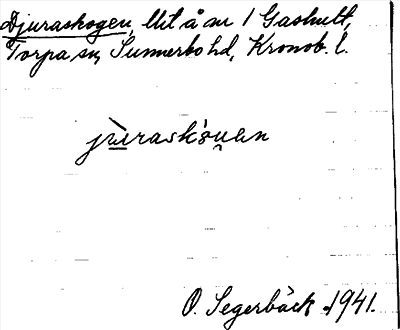 Djuraskogen, lht å av 1 Gashult,
Torpa sn, Sunnerbo hd, Kronob. l.
O. Segerbäck 1941.